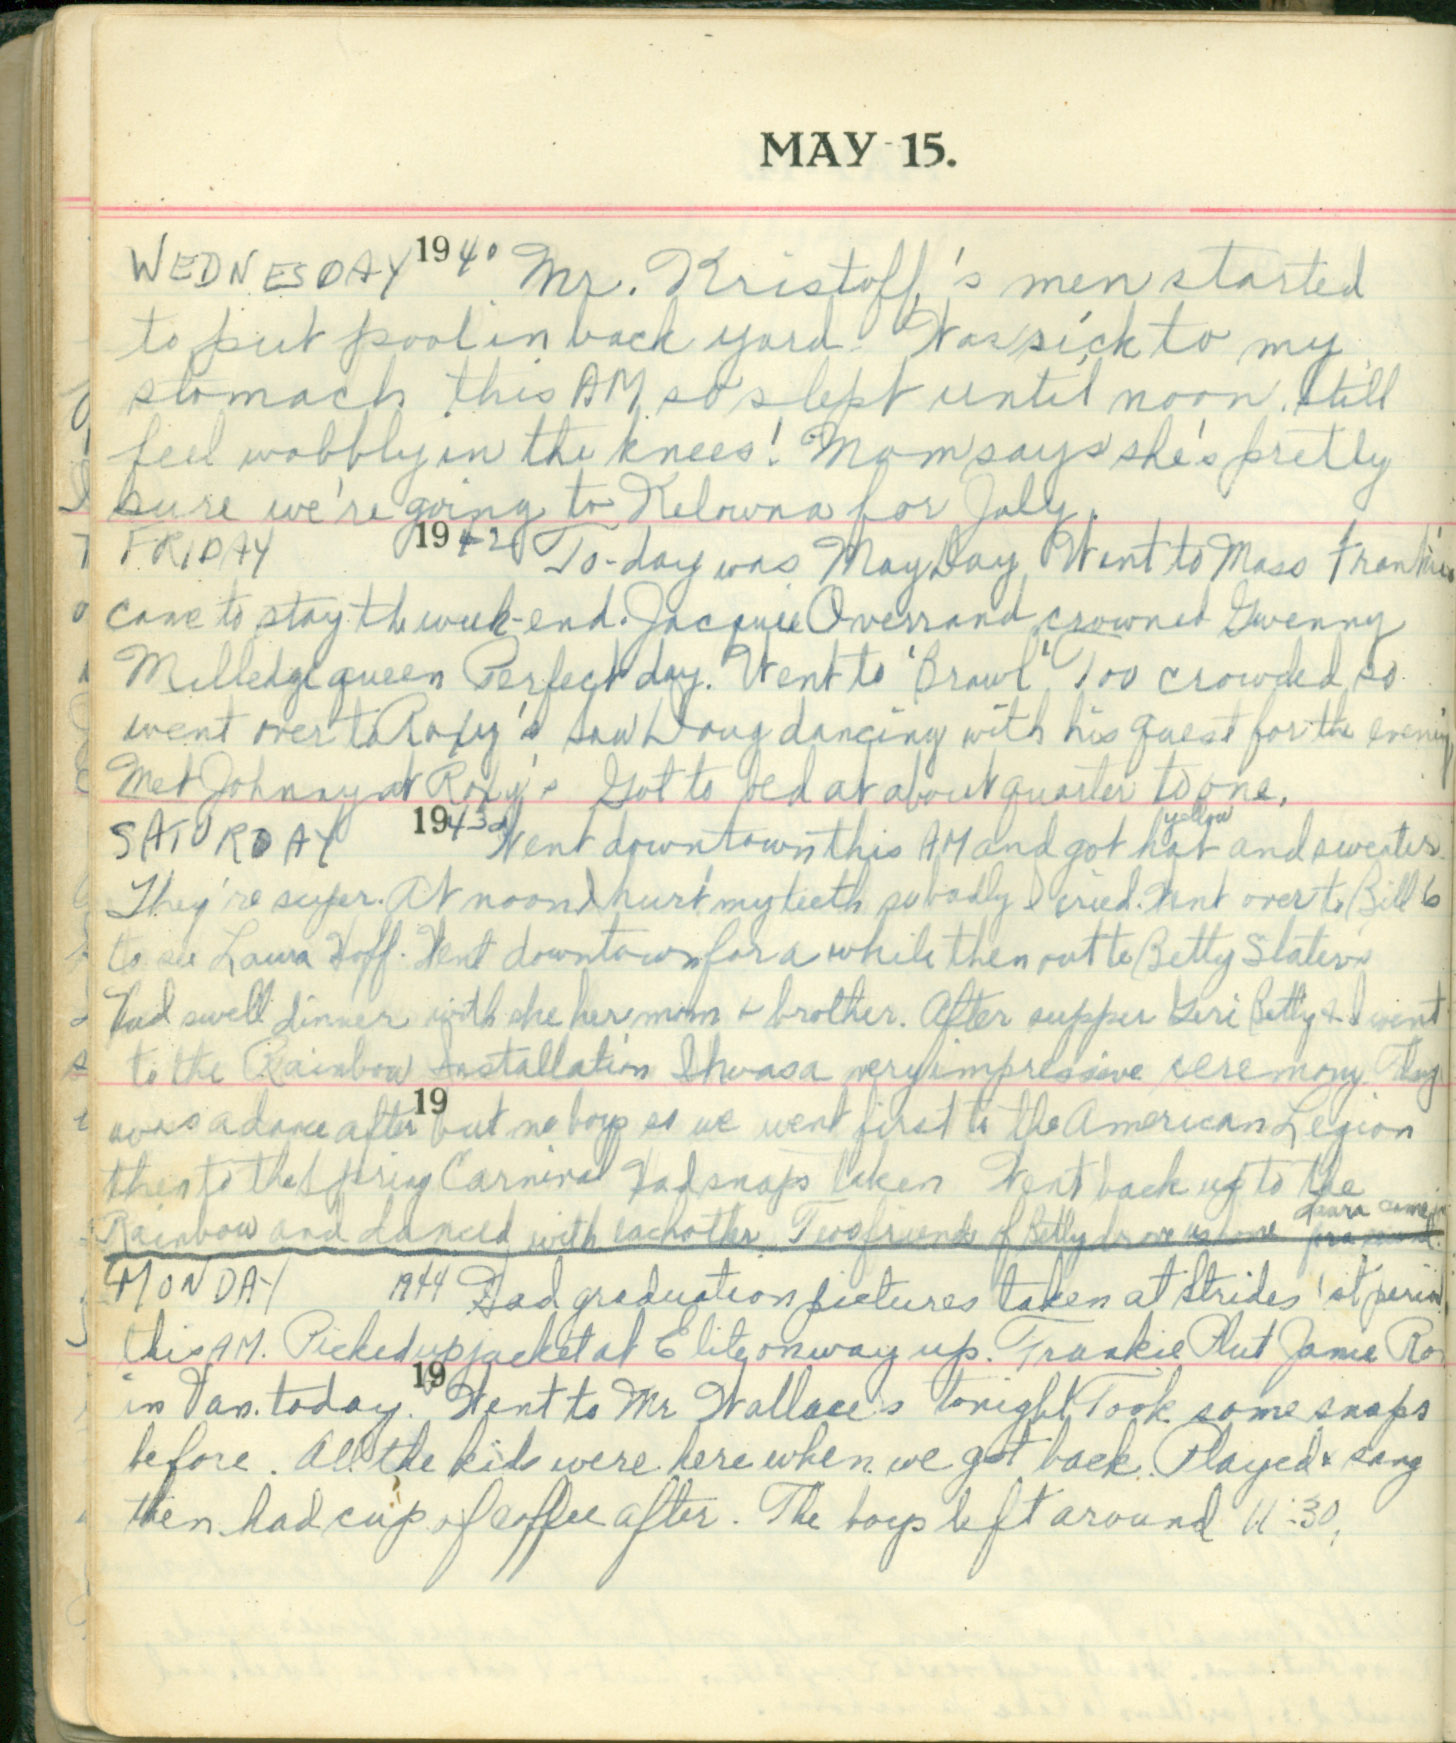 MAY 15.
WEDNESDAY 1940 Mr. Kristoff's men started
to put pool in back yard. Was sick to my
stomach this AM so slept until noon. Still
feel wobbly in the knees! Mom says she's pretty
sure we're going to Kelowna for July.
FRIDAY 1942 To-day was May Day. Went to Mass Frankie
came to stay the week-end. Jacquie Overrand crowned Gwenny
Milledge queen Perfect day. Went to 'Brawl' Too crowded so
went over to Roxy's saw Doug dancing with his guest for the evening
Met Johnny at Roxy's Got to bed at about quarter to one.
SATURDAY 1943 Went downtown this AM and got yellow hat and sweater
They're super. At noon I hurt my teeth so badly I cried. Went over to Bill
to see Laura Hoff. Went downtown for a while then out to Betty Slaters
Had swell dinner with she her mom & brother. After supper Geri Betty & I went
to the Rainbow Installation It was a very impressive ceremony.
19
was a dance after but no boys so we went first to the American Legion
then to the Spring Carnival Had snaps taken Went back up to the
Rainbow and danced with eachother. Two friends of Betty drove us home Laura came in
MONDAY 1944 Had graduation pictures taken at Strides 1st period
this AM. Picked up jacket at Elite on way up. Frankie Jamie
19
in Van. today. Went to Mr Wallace's tonight Took some snaps
before. All the kids were here when we got back. Played & sang
then had cup of coffee after. The boys left around 11:30.